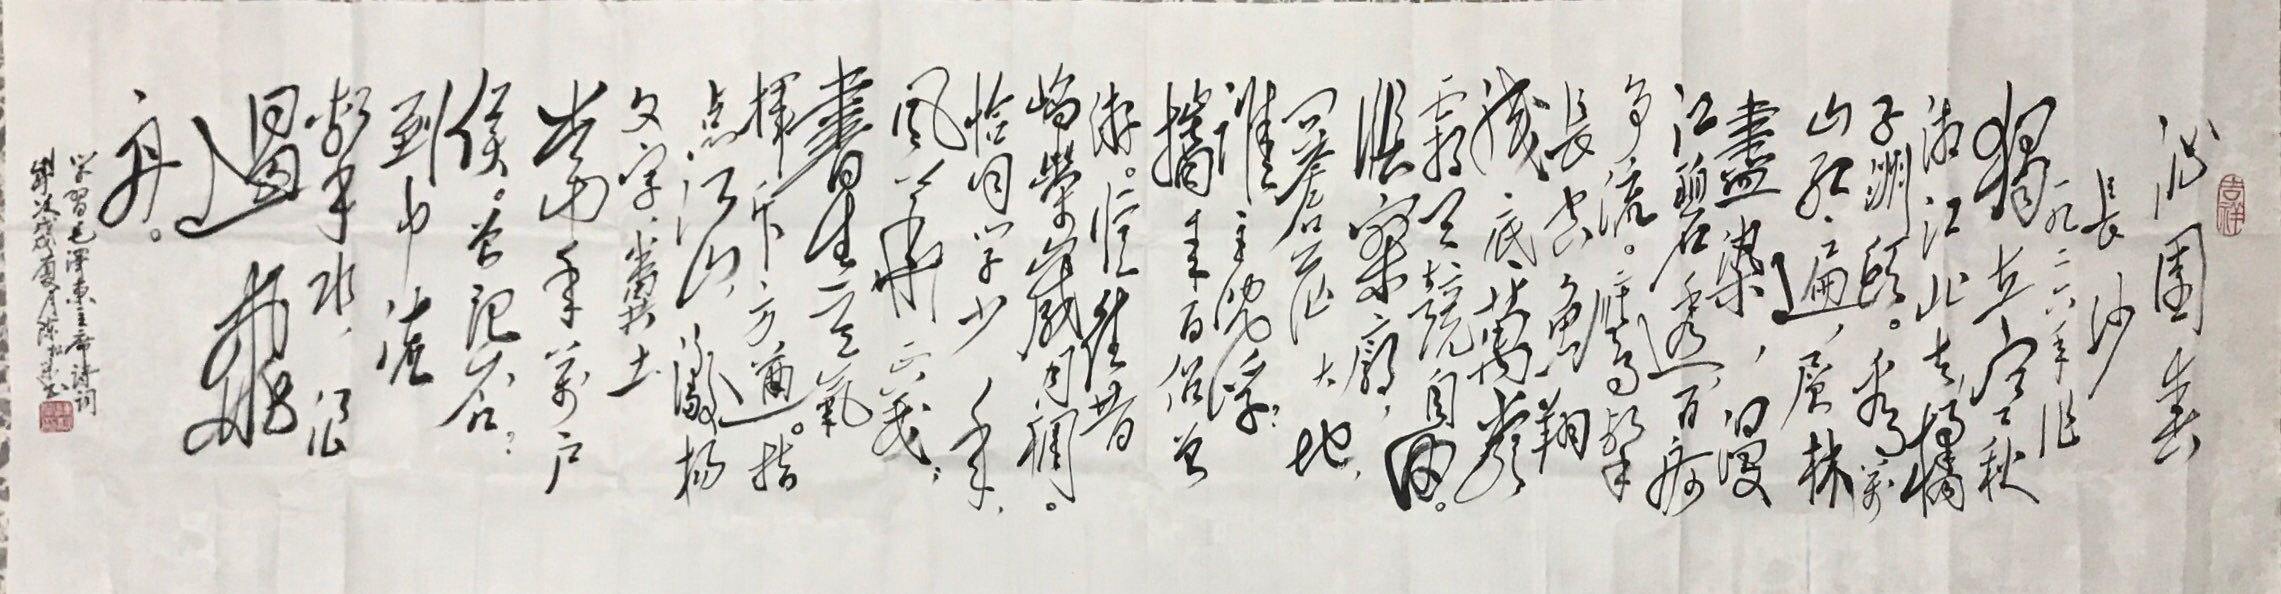 吉祥
沁園春
長沙
一九二六年作
獨立寒秋
湘江北去橘
子洲頭。看萬
山紅遍，層林
盡染，漫
江碧透，百舸
争流。鷹擊
長空魚翔
淺底，萬類
霜天競自由。
悵寥廓，
問蒼茫大地，
誰主沉浮？
攜來百侣曾
游。憶往昔
崢嶸歲月稠。
恰同學少年，
風華正茂；
書生意氣
揮斥方遒。指
点江山，激揚
文字，糞土
當年萬户
侯。曾記否？
到中流
擊水，浪
遏飛
舟。
學習毛澤東主席詩詞
戊戌夏月陈